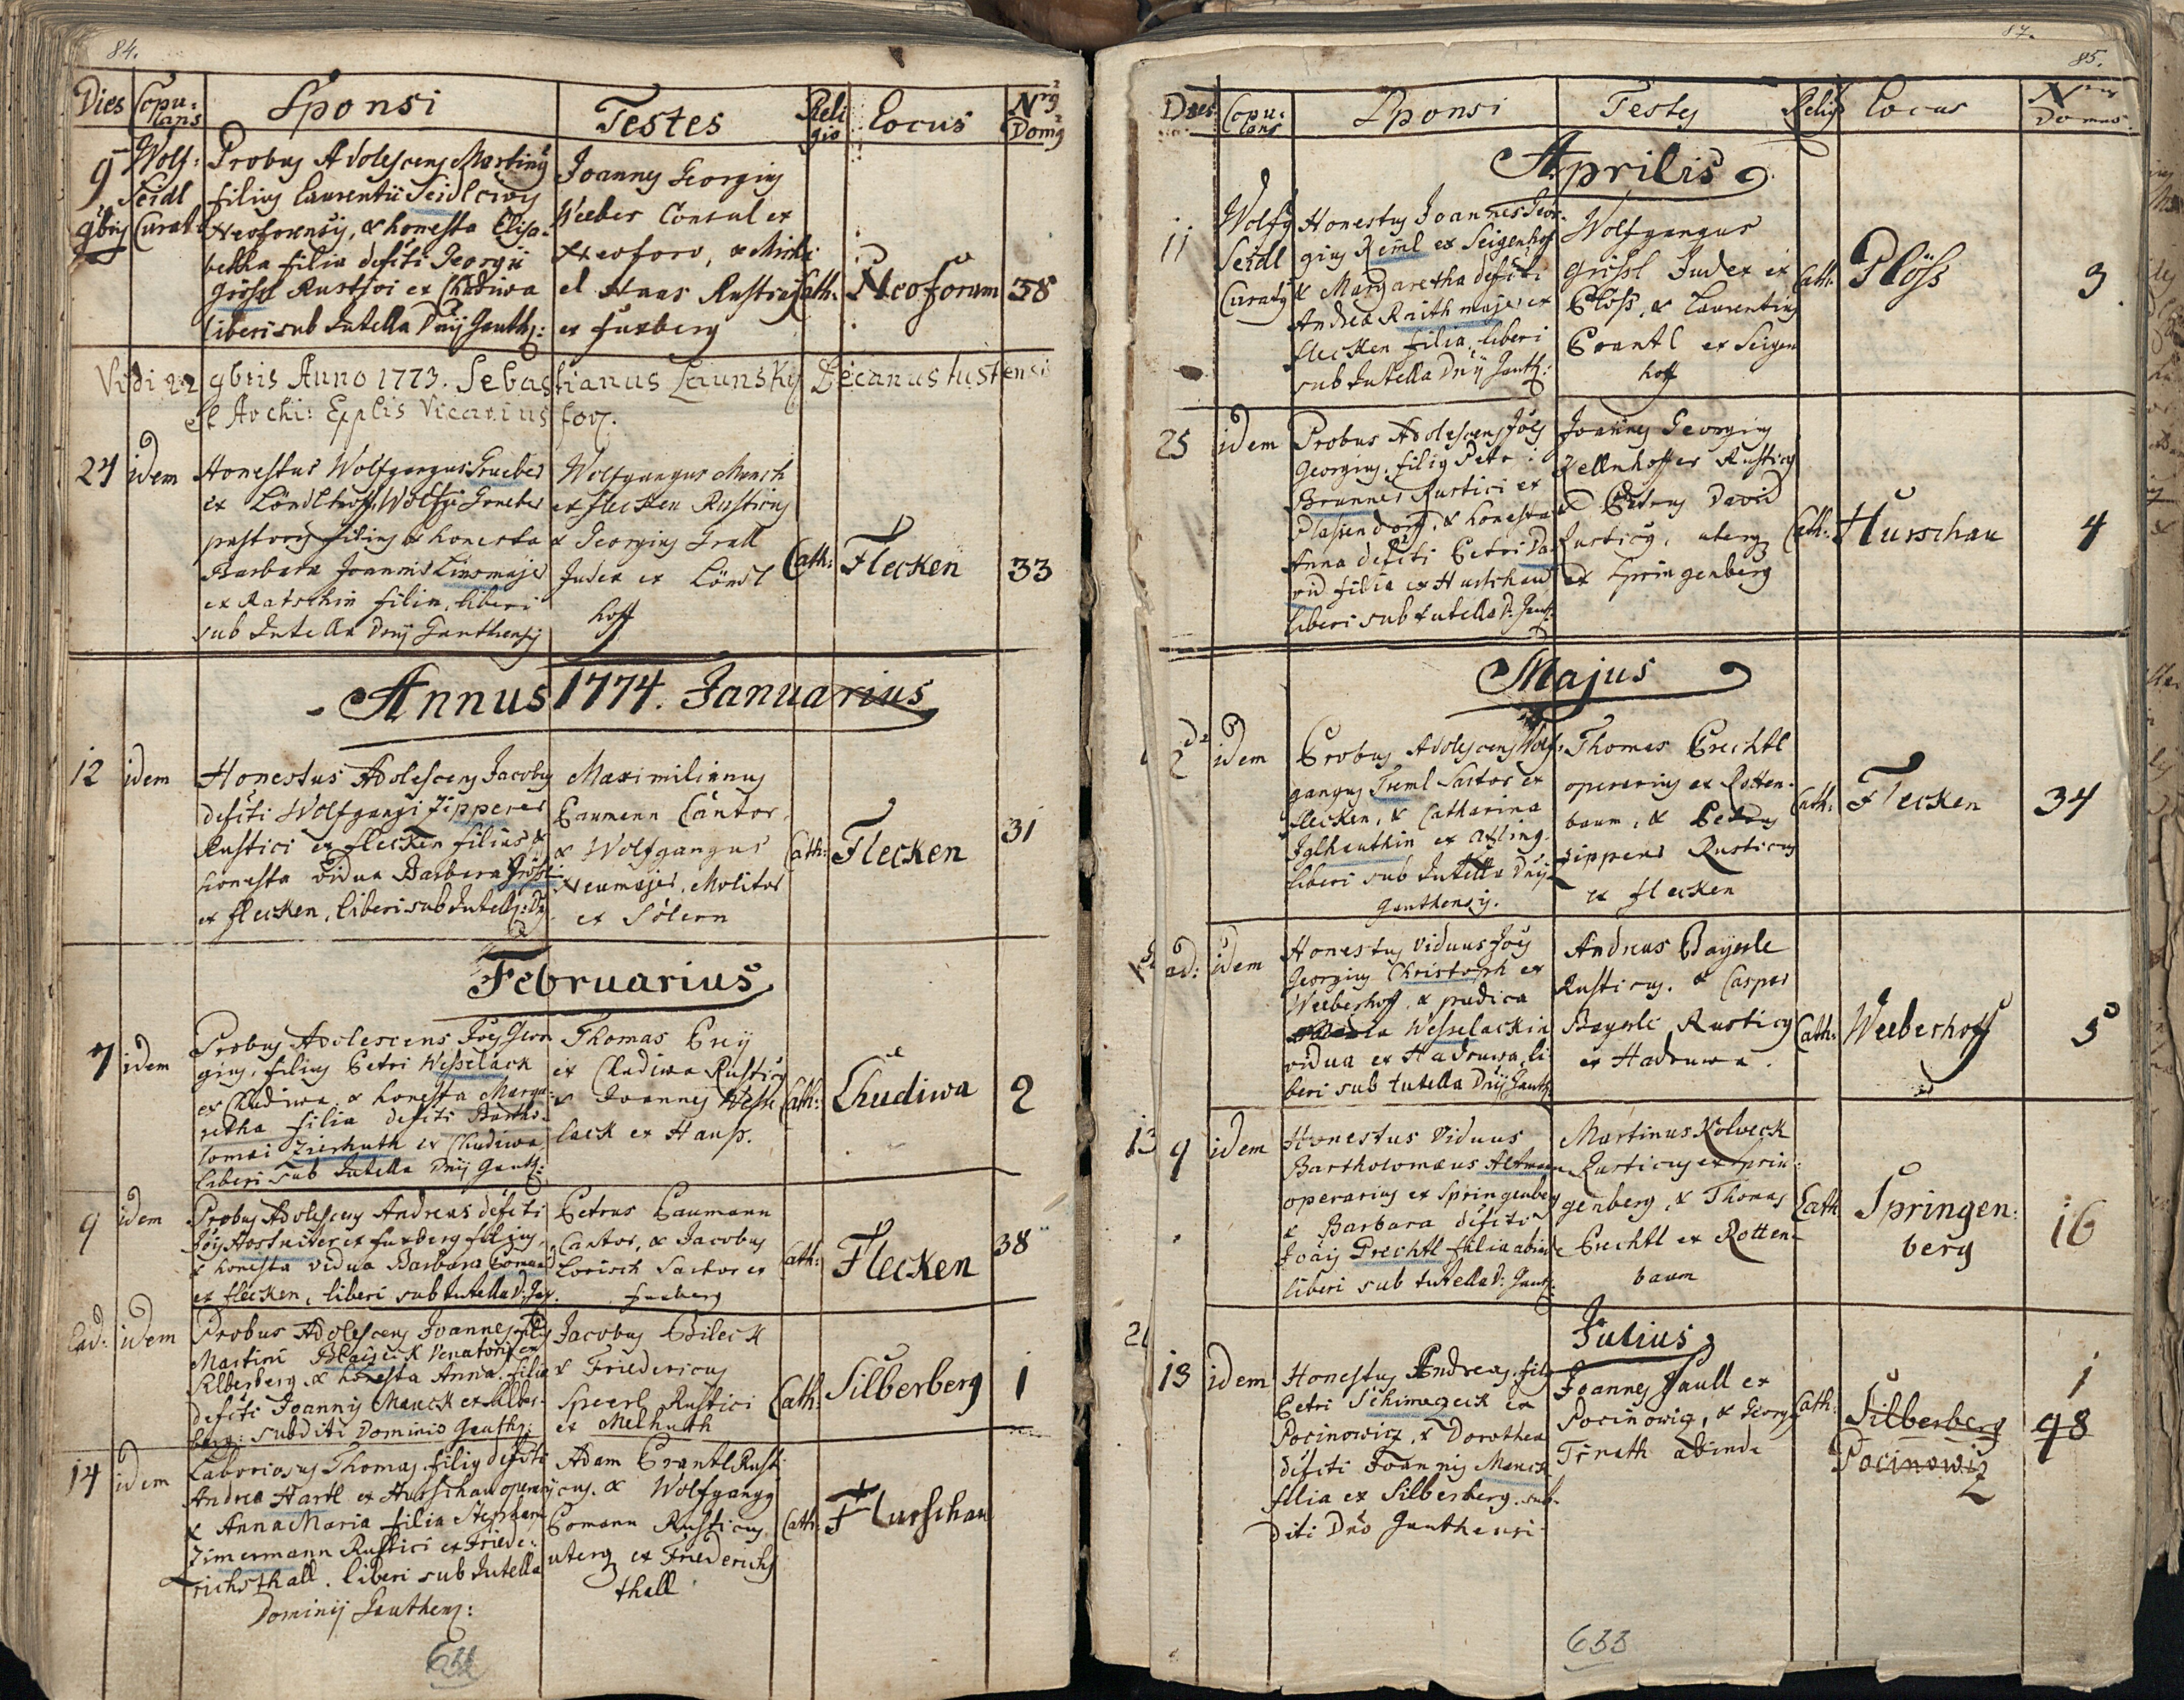 84.
Dies Copu: lans Sponsi Testes Reli gio Locus Nrg Domg
9 Wolf: Seidl Curat
9bris
Probus Adolescens Martinus
filius Laurentii Seidl civis
Neoforensis, & honesta Elisa-
betha filia defcti Georgii
Grössl Rustici ex Chudiwa
liberi sub Tutella Dnij Gauth:
Joannes Georgius
Weeber Consul ex
Neoforo, & Micha
el Haas Rusticus
ex Fuxberg
Cath: Neoforum 38
Vidi 22 9bris Anno 1773. Sebastianus Launsky Decanus tustensis
et Archi: Epplis Vicarius for.
24 idem
Honestus Wolfgangus Grueber
ex Löndlhoff, Wolfgi Grueber
pastoris filius & honesta
Barbara Joannis Linsmajer
ex Ratschin filia, liberi
sub Tutella Dnij Gauthensis
Wolfgangus Mensch
ex Flecken Rusticus
& Georgius Grall
Judex ex Löndl
hoff
Cath: Flecken 33
Annus 1774. Januarius
12 idem
Honestus Adolescens Jacobus
defcti Wolfgangi Zipperer
Rustici ex Flecken filius, &
honesta vidua Barbara Grössl
ex Flecken, liberi sub Tutell: Dn
Maximilianus
Baumann Cantor
& Wolfgangus
Neumajer, Molitor
ex Sölern
Cath: Flecken 31
Februarius
7 idem
Probus Adolescens Joes Geor
gius, filius Petri Wesselack
ex Chudiwa, & honesta Marga-
retha filia defcti Bartho-
lomaei Zierhuth ex Chudiwa
liberi sub Tutella Dnij Gauth:
Thomas Preÿ
ex Chudiwa Rusticus
& Joannes Wesse
lack ex Hanss.
Cath: Chudiwa 2
9 idem
Probus Adolescens Andreas defcti
Jois ex Fuxberg filius,
& honesta vidua Barbara
ex Flecken, liberi sub tutella D: Ga
Petrus Baumann
Cantor, & Jacobus
Lorisch Sartor ex
Fuxberg
Cath: Flecken 38
Ead: idem
Probus Adolescens Joannes filius
Martini Blaiseck Venatoris ex
Silberberg & honesta Anna filia
defcti Joannis Maneck ex Silber-
berg: subditi Dominio Gauth:
Jacobus Bileck
& Fridericus
Speerl Rustici
ex Melhuth
Cath: Silberberg 1
14 idem
Laboriosus Thomas filius defcti
Andrea Hartl ex Hurschau operarij
& Anna Maria filia Stephani
Zimermann Rustici ex Friede-
richsthall. liberi sub Tutella
Dominij Gauthens:
Adam Brantl Rusti
cus. & Wolfgangus
Bomann Rusticus
uterq ex Friderichs
thall
Cath: Hurschau
632
87.
85.
Dies Copu: lans Sponsi Testes Religio Locus Nrus Domus
Aprilis
11 Wolfg Seidl Curatus
Honestus Joannes Geor-
gius Reml ex Seigenhof
& Margaretha defcti
Andrea Raithmajer ex
Flecken filia, liberi
sub Tutella Dnij Gauth:
Wolfgangus
Grössl Judex ex
Plöss, & Laurentius
Brantl ex Seigen
hoff
Cath: Plöss 3
25 idem
Probus Adolescens Joes
Georgius, filius Petri
Brunner Rustici ex
Plassendorf, & honesta
Anna defcti Petri Da-
vid filia ex Hurschau
liberi sub tutella D: Gauth:
Joannes Georgius
Zellnhoffer Rusticus
& Petrus David
Rusticus, uterq
ex Springenberg
Cath: Hurschau 4
Majus
2da idem
Probus Adolescens Wolf-
gangus Treml Sartor ex
Flecken, & Catharina
Iglhauthin ex Aÿling.
liberi sub Tutella Dnij
Gauthensis.
Thomas Prechtl
operarius ex Rotten-
baum, & Petrus
Zipperer Rusticus
ex Flecken
Cath: Flecken 34
ead: idem
Honestus viduus Joes
Georgius Christoph ex
Weeberhoff, & pudica
Wesselackin
vidua ex Hadruwa, li
beri sub tutella Dnij Gauth
Andreas Baÿerle
Rusticus. & Casper
Bayerle, Rusticus
ex Hadruwa.
Cath: Weeberhoff 5
9 idem
Honestus Viduus
Bartholomæus Altmann
operarius ex Springenberg
& Barbara defcti
Joais Prechtl filia abinde
liberi sub tutella D: Gauth:
Martinus Kolveck
Rusticus ex Sprin-
genberg, & Thomas
Prechtl ex Rotten-
baum
Cath Springen: berg 16
Julius
13 idem
Honestus Andreas, filius
Petri Schimageck ex
Pocinowiz, & Dorothea
defcti Joannis Maneck
filia ex Silberberg. sub-
diti Dno Gauthensi
Joannes Paull ex
Pocinowiz, & Georgs
Tinath abinde
Cath: Silberberg 1
Pocinowiz 98
633